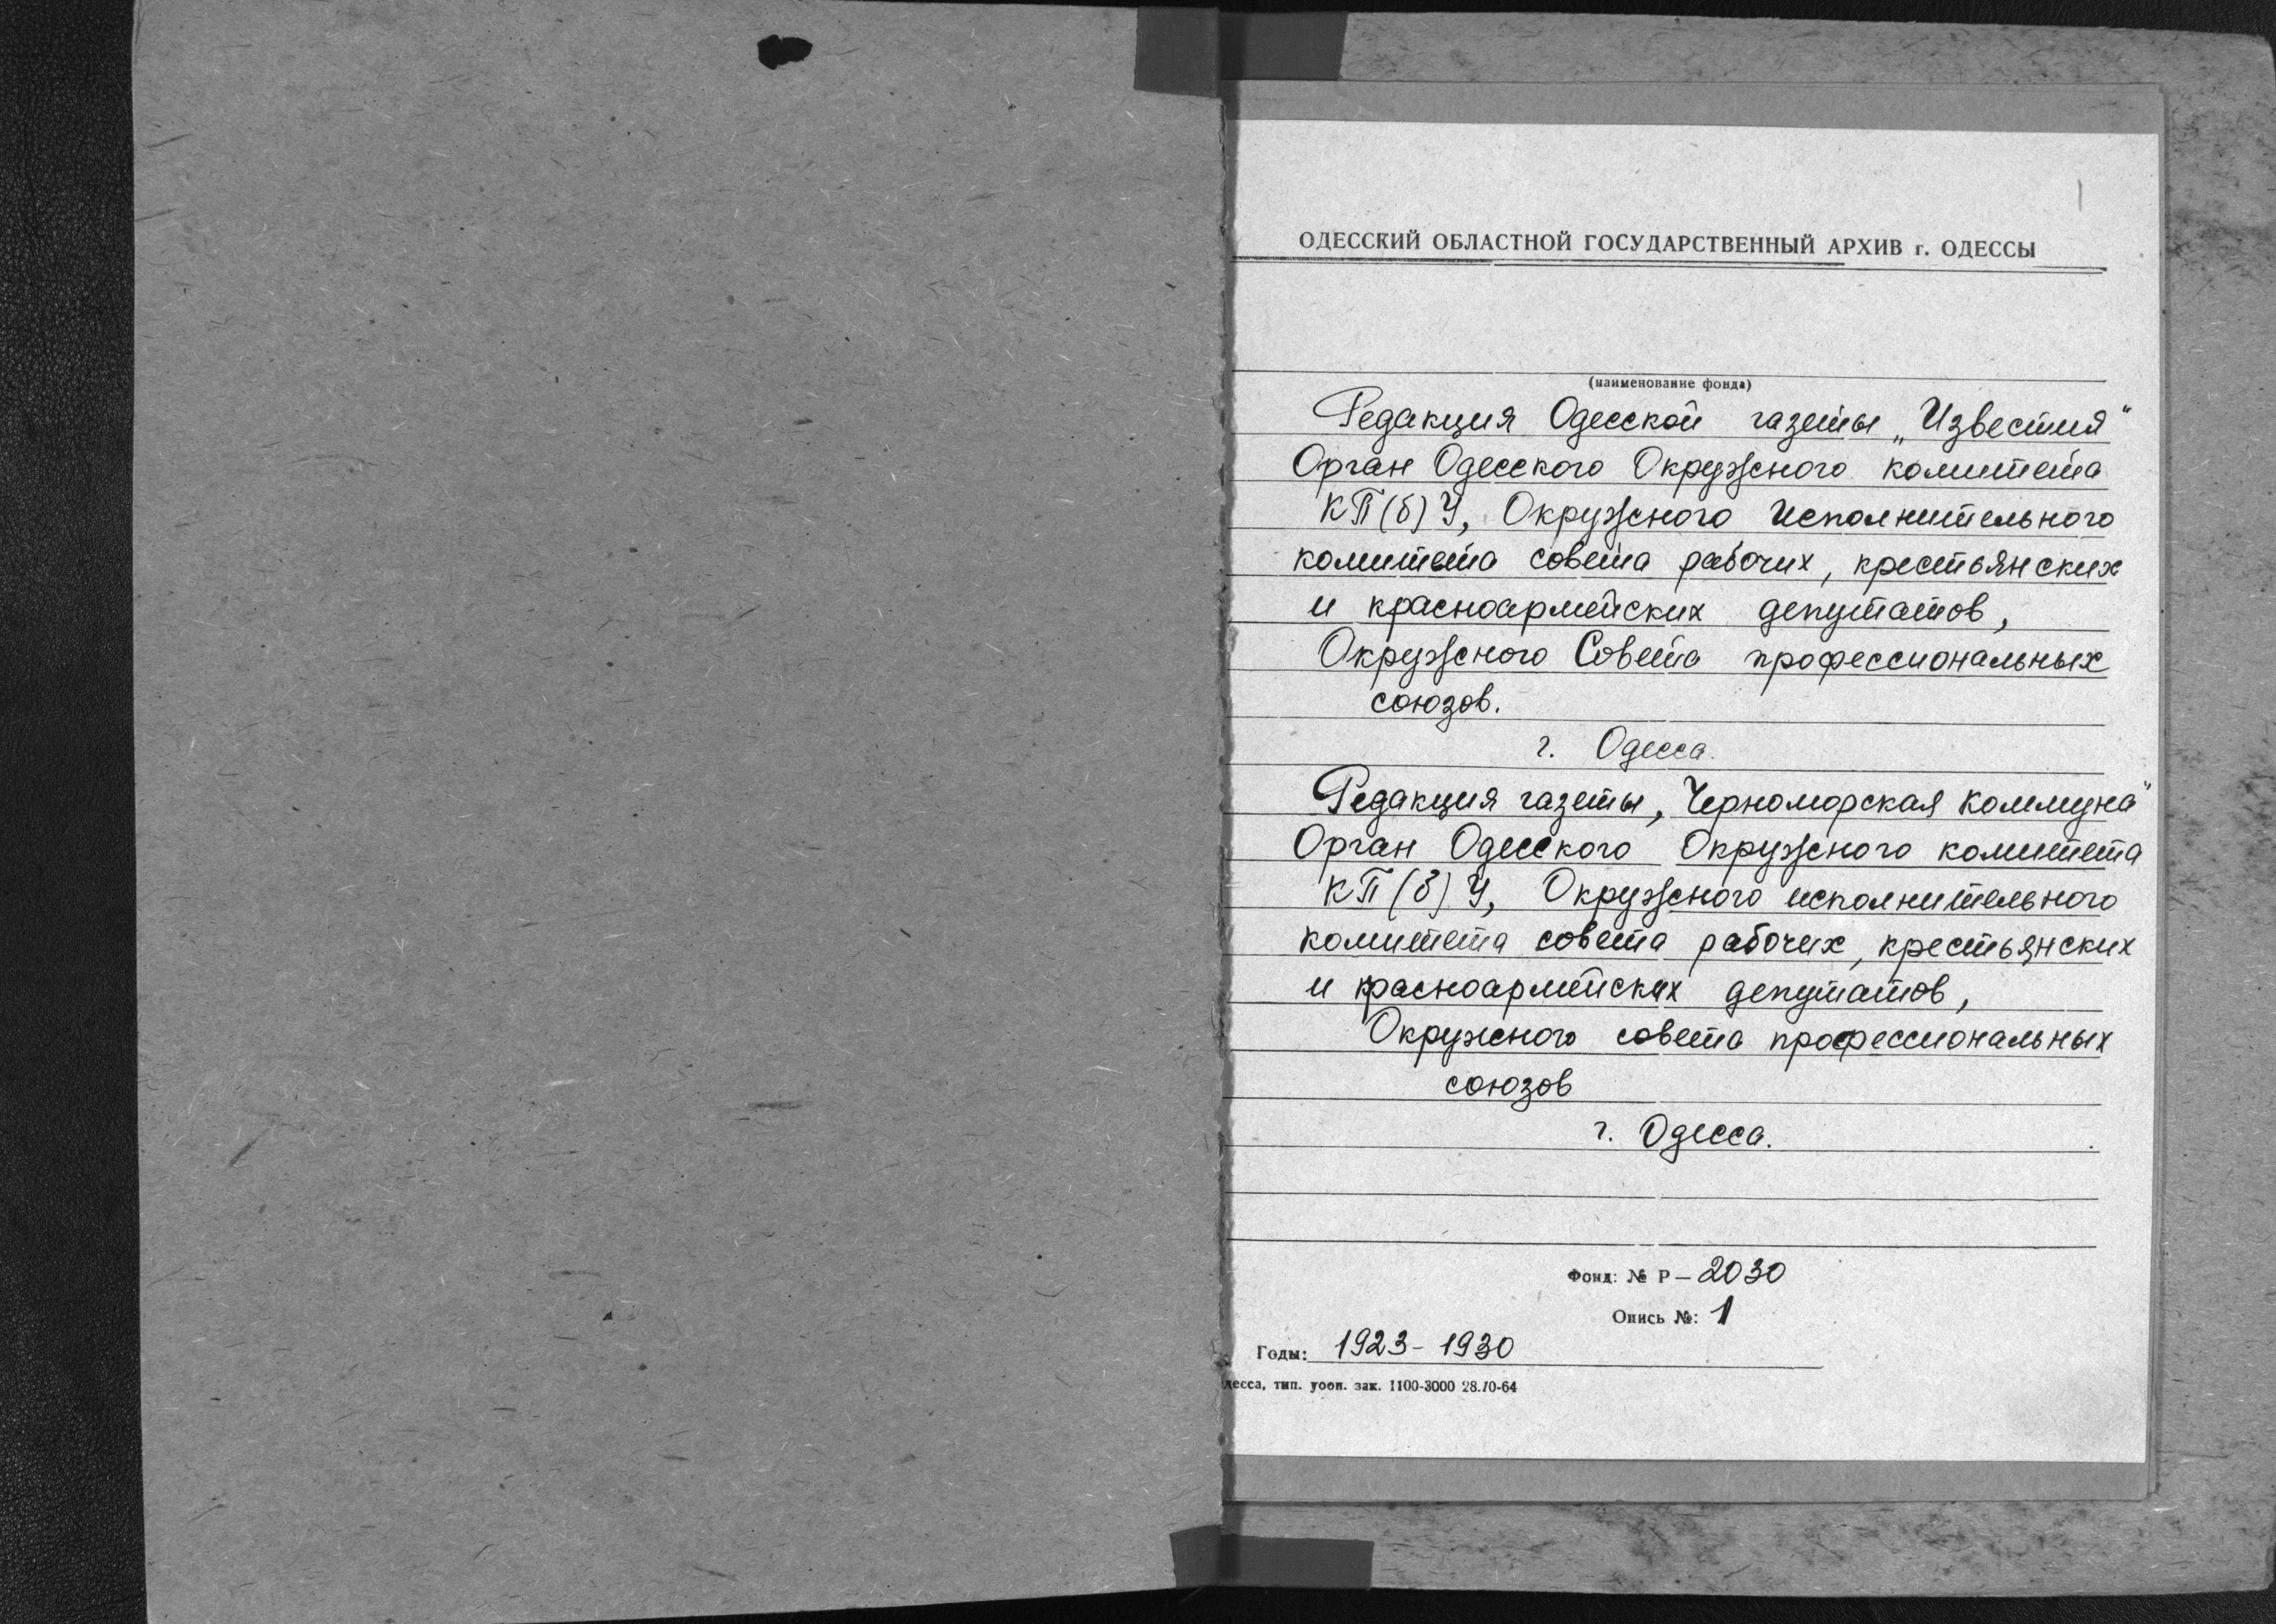 1
ОДЕССКИЙ ОБЛАСТНОЙ ГОСУДАРСТВЕННЫЙ АРХИВ г. ОДЕССЫ
(наименование фонда)
Редакция Одесской газеты „Известия“
Орган Одесского Окружного комитета
КП(б)У, Окружного Исполнительного
комитета совета рабочих, крестьянских
и красноармейских депутатов,
Окружного Совета профессиональных
союзов.
г. Одесса.
Редакция газеты, Черноморская коммуна"
Орган Одесского Окружного комитета
КП(б)У, Окружного исполнительного
комитета совета рабочих, крестьянских
и красноармейских депутатов,
Окружного совета профессиональных
союзов
г. Одесса.
Фонд: № Р-2030
Опись №: 1
Годы: 1923-1930
десса, тип. уооп. зак. 1100-3000 28.10-64